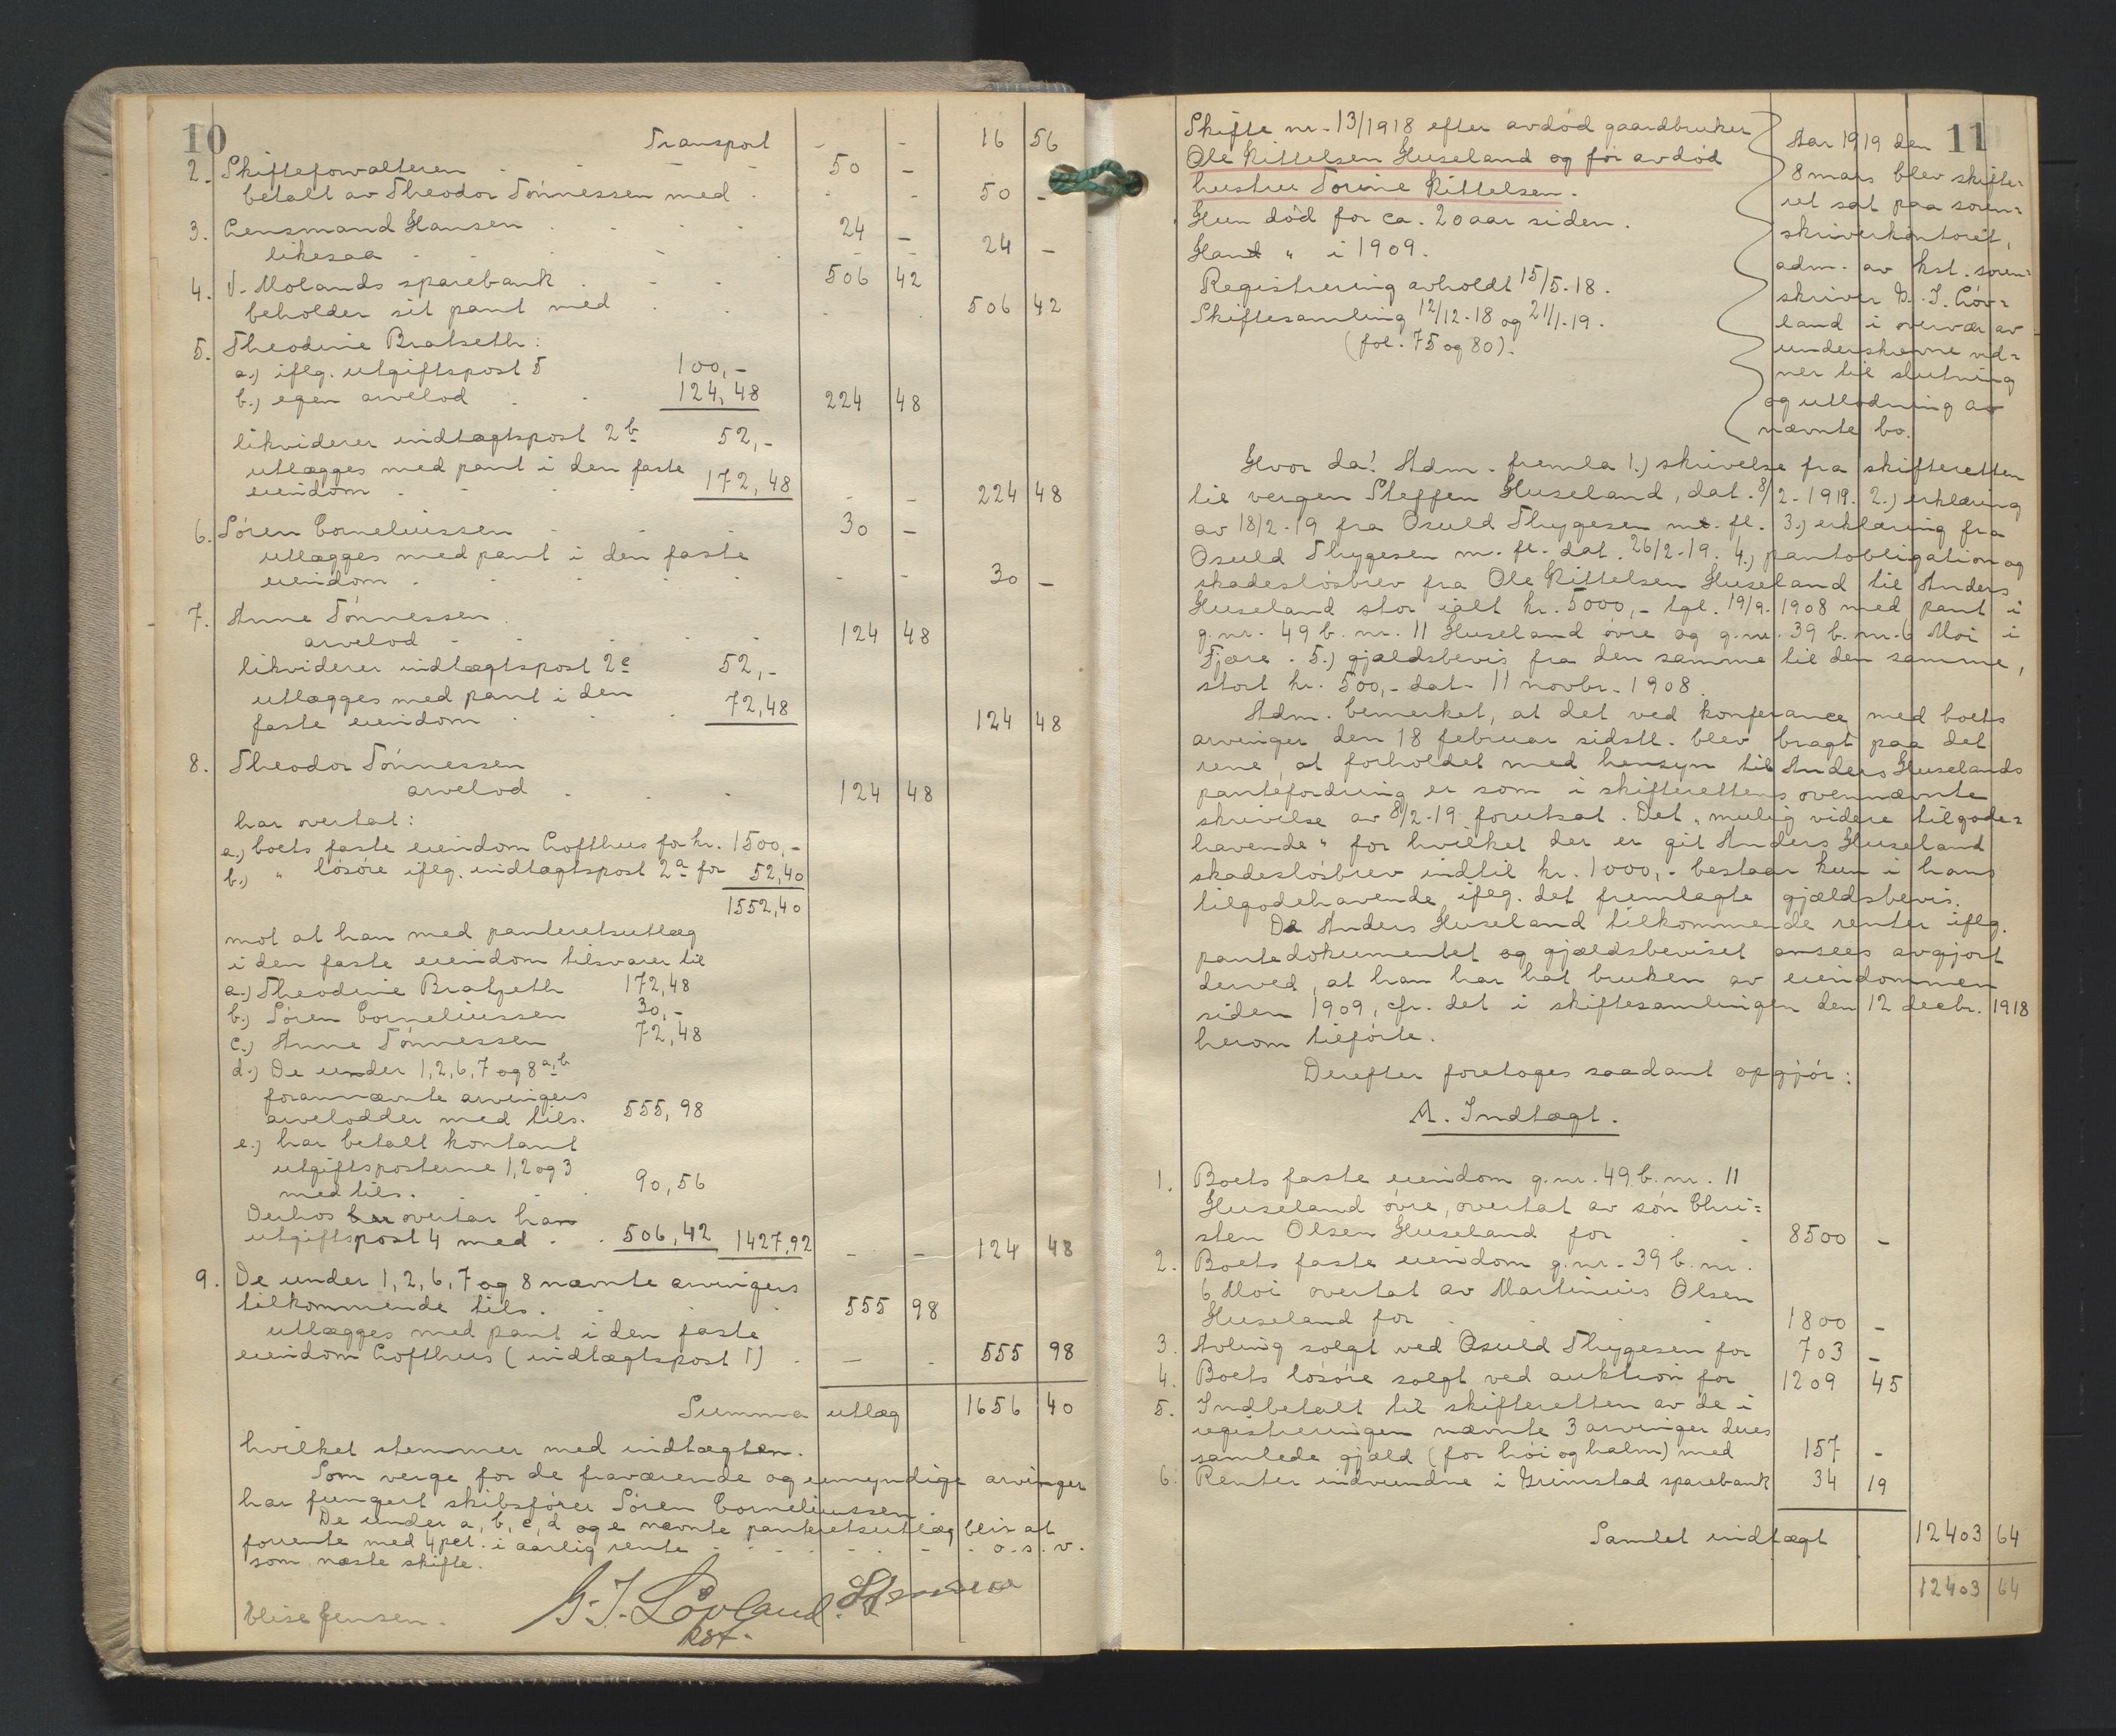 10
Transport - - 16 56
2. Skifteforvalteren 50 -
betalt av Theodor Tönnessen med - - 50 -
3. Lensmand Hansen 24 -
likesaa - - 24 -
4. V. Molands sparebank 506 42
beholder sit pant med 506 42
5. Theodine Bratseth:
a.) iflg. utgiftspost 5 100,-
b.) egen arvelod 124,48 224 48
likviderer indtægtspost 2b 52,-
utlægges med pant i den faste
eiendom 172,48 - - 224 48
6. Sören Corneliussen 30 -
utlægges med pant i den faste
eiendom - - 30 -
7. Anne Tönnessen
arvelod 124 48
likviderer indtægtspost 2c 52,-
utlægges med pant i den
faste eiendom 72,48 124 48
8. Theodor Tönnessen
arvelod 124 48
har overtat:
a.) boets faste eiendom Lofthus for kr. 1500,-
b.) " lösöre iflg. indtægtspost 2a for 52,40
1552,40
mot at han med panteretsutlæg
i den faste eiendom tilsvarer til
a.) Theodine Bratseth 172,48
b.) Sören Corneliussen 30,-
c.) Anne Tönnessen 72,48
d.) De under 1,2,6,7 og 8a,b
forannævnte arvingers
arvelodder med tils. 555,98
e.) har betalt kontant
utgiftsposterne 1,2 og 3
med tils. 90,56
Derhos overtar han
utgiftspost 4 med 506,42 1427,92 - - 124 48
9. De under 1,2,6,7 og 8 nævnte arvingers
tilkommende tils. 555 98
utlægges med pant i den faste
eiendom Lofthus (indtægtspost 1) - - 555 98
Summa utlæg 1656 40
hvilket stemmer med indtægten.
Som verge for de fraværende og umyndige arvinger
har fungert skibsförer Sören Corneliussen.
De under a, b, c, d og e nævnte panteretsutlæg blir at
forrente med 4 pct. i aarlig rente - - - - - - o.s.v.
som næste skifte.
G. J. Lövland
kst.
Elise Jensen.
11
Skifte nr. 13/1918 efter avdöd gaardbruker
Ole Kittelsen Huseland og för avdöd
hustru Torine Kittelsen.
Hun död for ca. 20 aar siden.
Han " i 1909.
Registrering avholdt 15/5-18.
Skiftesamling 12/12-18 og 21/1-19.
(fol. 75 og 80).
Aar 1919 den
8 mars blev skifte=
ret sat paa soren=
skriverkontoret,
adm. av kst. soren=
skriver G. J. Löv=
land i overvær av
underskrevne vid=
ner til slutning
og utlodning av
nævnte bo.
Hvor da! Adm. fremla 1.) skrivelse fra skifteretten
til vergen Steffen Huseland, dat. 8/2-1919. 2.) erklæring
av 18/2-19 fra Osuld Thygesen m. fl. 3.) erklæring fra
Osuld Thygesen m. fl. dat. 26/2-19. 4.) pantobligation og
skadeslösbrev fra Ole Kittelsen Huseland til Anders
Huseland stor ialt kr. 5000,- tgl. 19/9-1908 med pant i
g.nr. 49 b.nr. 11 Huseland övre og g.nr. 39 b.nr. 6 Moi i
Fjære. 5.) gjældsbevis fra den samme til den samme,
stort kr. 500,- dat. 11 novbr. 1908.
Adm. bemerket, at det ved konferance med boets
arvinger den 18 februar sidstl. blev bragt paa det
rene, at forholdet med hensyn til Anders Huselands
pantefordring er som i skifterettens ovennævnte
skrivelse av 8/2-19 forutsat. Det „mulig videre tilgode=
havende" for hvilket der er git Anders Huseland
skadeslösbrev indtil kr. 1000,- bestaar kun i hans
tilgodehavende iflg. det fremlagte gjældsbevis.
De Anders Huseland tilkommende renter iflg.
pantedokumentet og gjældsbeviset ansees avgjort
derved, at han har hat bruken av eiendommen
siden 1909, cfr. det i skiftesamlingen den 12 decbr. 1918
herom tilförte.
Derefter foretoges saadant opgjör:
A. Indtægt.
1. Boets faste eiendom g.nr. 49 b.nr. 11
Huseland övre, overtat av sön Chri=
sten Olsen Huseland for 8500 -
2. Boets faste eiendom g.nr. 39 b.nr.
6 Moi overtat av Martinius Olsen
Huseland for 1800 -
3. Avling solgt ved Osuld Thygesen for 703 -
4. Boets lösöre solgt ved auktion for 1209 45
5. Indbetalt til skifteretten av de i
registreringen nævnte 3 arvinger deres
samlede gjæld (for höi og halm) med 157 -
6. Renter indvundne i Grimstad sparebank 34 19
Samlet indtægt 12403 64
12403 64